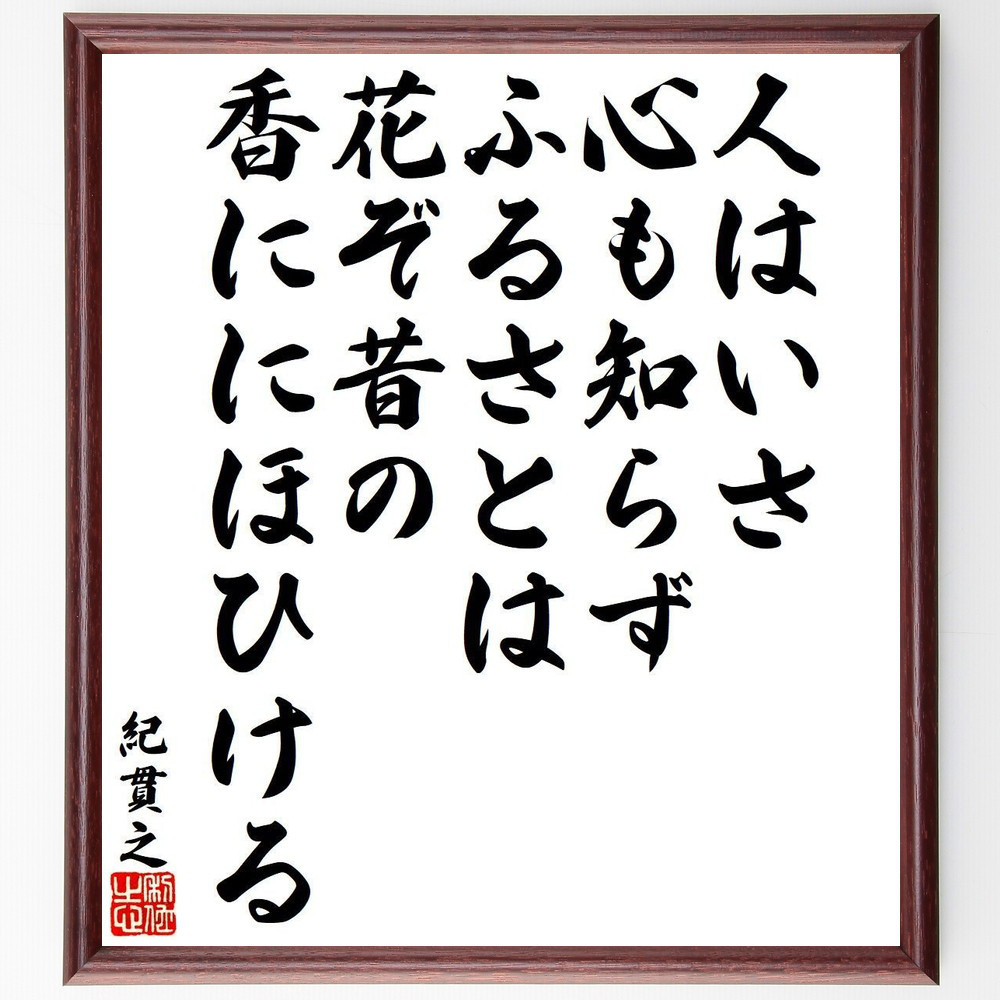 人はいさ
心も知らず
ふるさとは
花ぞ昔の
香ににほひける
紀貫之